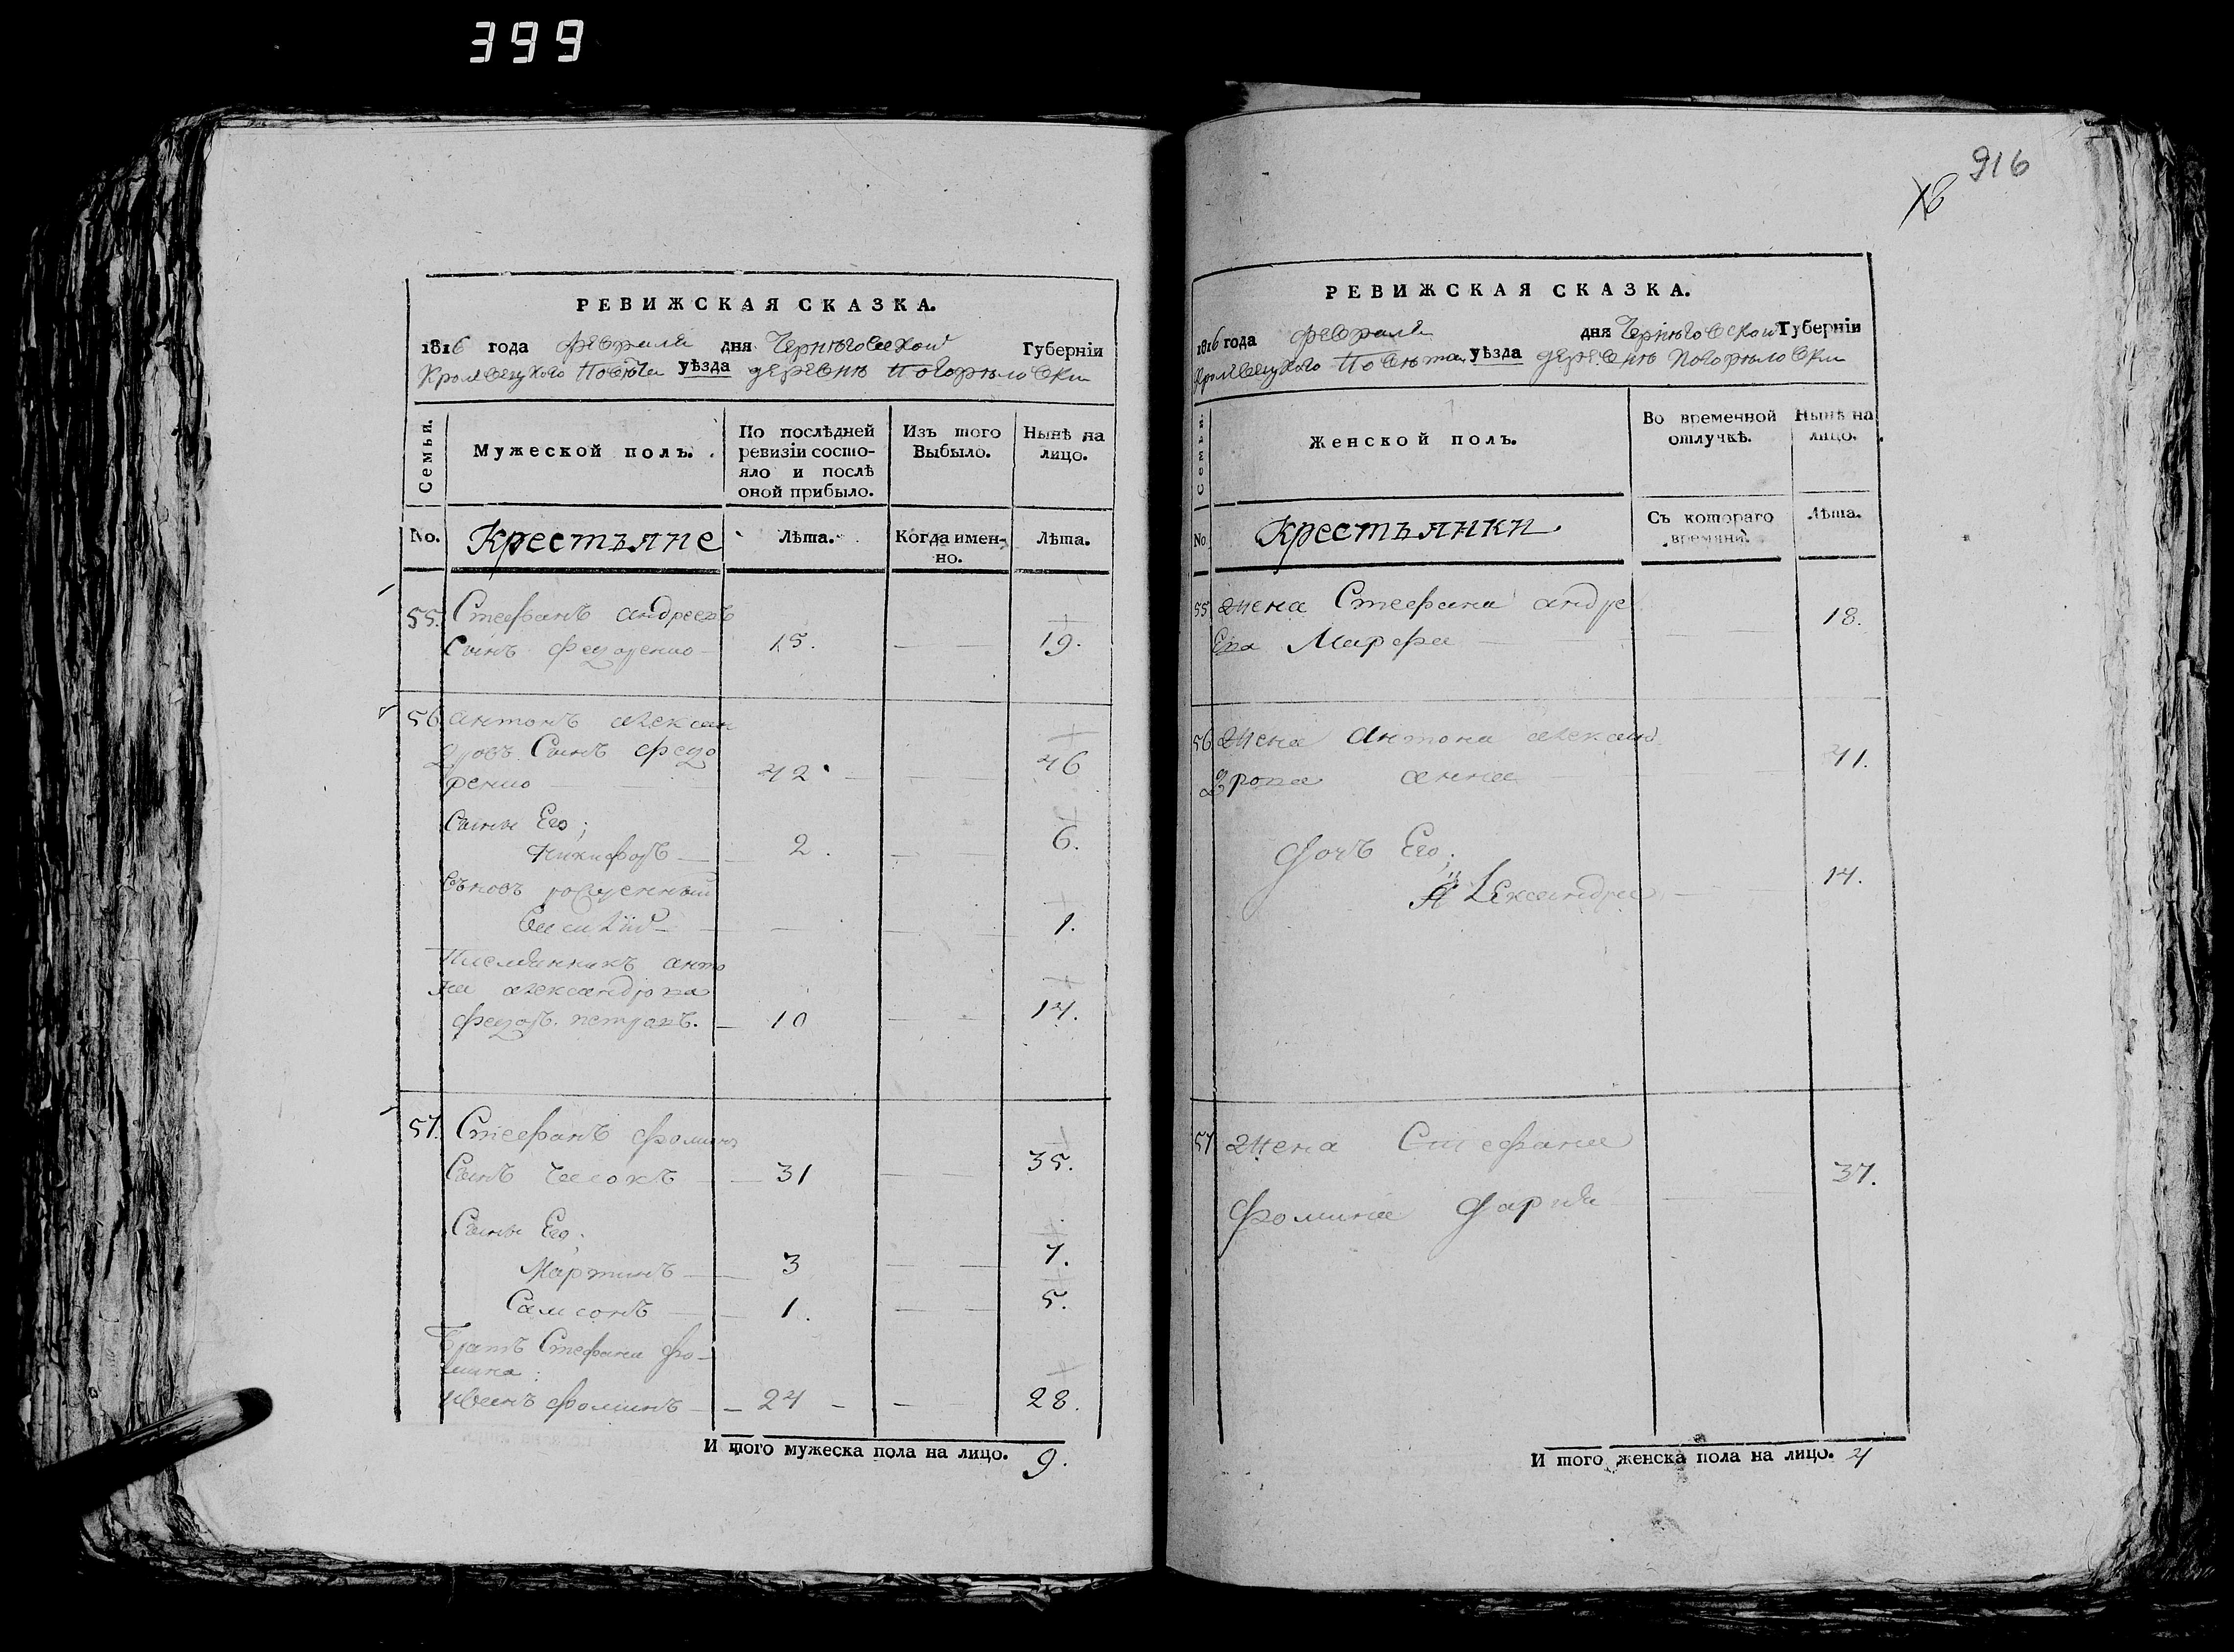 399
916
18
РЕВИЖСКАЯ СКАЗКА.
1816 года февраля дня Черниговской Губерніи
Кролевецкого Повѣта уѣзда деревнѣ Погорѣловки
Семьи.
Мужеской полъ.
По послѣдней ревизіи состо-
яло и послѣ
оной прибыло.
Изъ того Выбыло.
Нынѣ на лицо.
No. Крестьяне Лѣта. Когда имен-
но. Лѣта.
55. Стефанъ андреевъ
Сынъ Федоренко 15. 19.
56 антонъ алексан
дровъ Сынъ федо
ренко 42 46
Сыны Его;
Никифоръ 2. 6.
Вновь рожденный
Василій 1.
Племянникъ анто
на александрова
федоръ петровъ. 10 14.
57. Стефанъ фоминъ
Сынъ 31 35.
Сыны Его;
Мартинъ 3 7.
Самсонъ 1. 5.
Братъ Стефана фо-
мина:
иванъ фоминъ 24 28.
И того мужеска пола на лицо. 9.
РЕВИЖСКАЯ СКАЗКА.
1816 года февраля дня Черниговской Губерніи
Кролевецкого Повѣта уѣзда деревнѣ Погорѣловки
Семьи.
Женской полъ.
Во временной отлучкѣ.
Нынѣ на лицо.
No Крестьянки Съ котораго времяни. Лѣта.
55 жена Стефана андре
ева Марфа 18.
56 жена антона алексан
дрова анна 41.
Дочь Его;
Александра 14.
57 жена Стефана
фомина Дария 37.
И того женска пола на лицо. 4